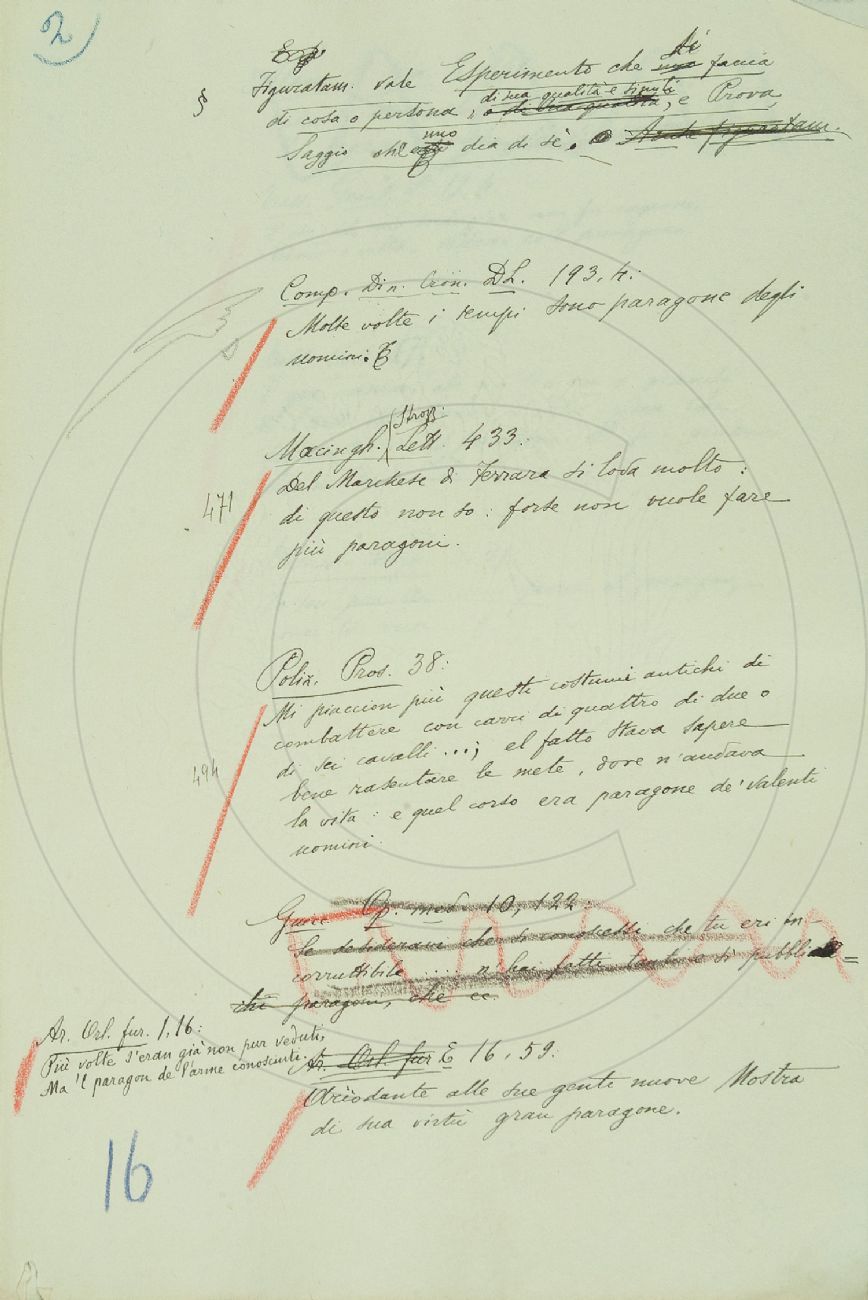 2
§ Figuratam. vale Esperimento che si faccia
di cosa o persona, di sua qualità e simili, e Prova,
Saggio che uno dia di sè.
Comp. Din. Cron. DL. 193, 4:
Molte volte i tempi sono paragone degli
uomini.
Macingh. Strozz. Lett. 433:
471
Del Marchese di Ferrara si loda molto:
di questo non so: forse non vuole fare
più paragoni.
Poliz. Pros. 38:
Mi piaccion più questi costumi antichi di
combattere con carri di quattro di due o
di sei cavalli...; el fatto stava sapere
494
bene rasentare le mete, dove n'andava
la vita: e quel corso era paragone de' valenti
uomini.
Guicc. Op. ined. 10, 122:
Se desideravi che si conoscessi che tu eri in-
corruttibile .... n'hai fatti tanti e sì pubblici
paragoni, che ec.
Ar. Orl. fur. 1, 16:
Più volte s'eran già non pur veduti,
Ma 'l paragon de l'arme conosciuti.
Ar. Orl. fur E 16, 59.
Ariodante alle sue genti nuove Mostra
di sua virtù gran paragone.
16